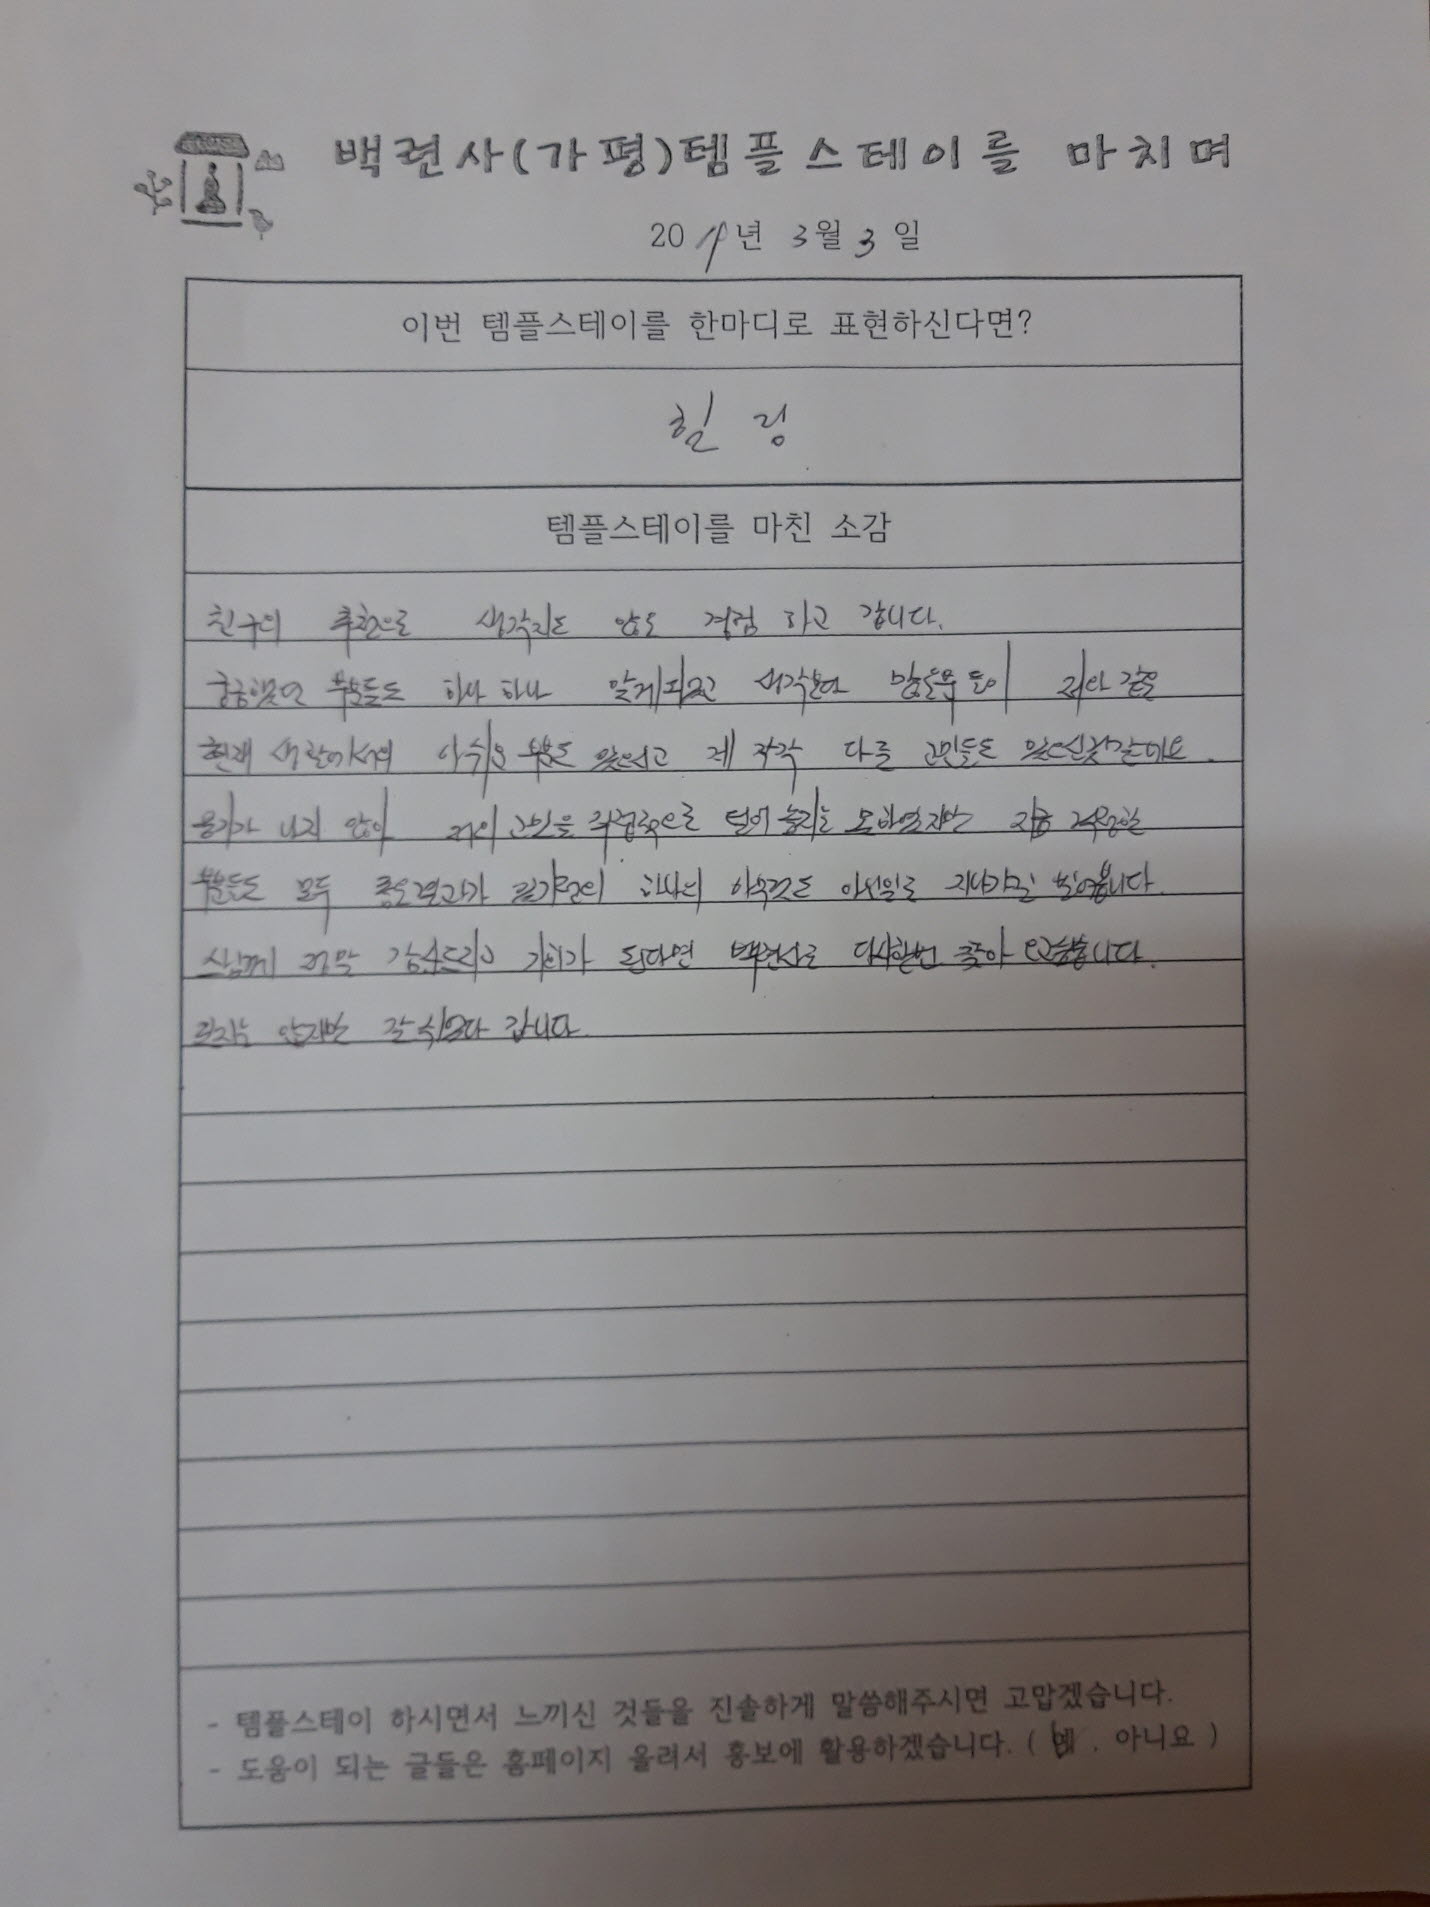 백련사(가평)템플스테이를 마치며
2019년 3월 3일
이번 템플스테이를 한마디로 표현하신다면?
힐링
템플스테이를 마친 소감
친구의 추천으로 생각지도 않도 경험 하고 갑니다.
궁금했던 부분들도 하나 하나 알게되었고 생각보다 많은분들이 저와 같은
현재 생활에서의 아쉬운 부분도 있으시고 제 각각 다른 고민들도 있으신것같네요.
용기가 나지 않아 저의 고민을 직접적으로 털어 놓지는 못하였지만 지금
부분들도 모두 좋은결과가 하나의 지나가길
스님께 정말 감사드리고 기회가 된다면 백련사로 다시한번 찾아 오겠습니다.
잘 쉬었다 갑니다.
- 템플스테이 하시면서 느끼신 것들을 진솔하게 말씀해주시면 고맙겠습니다.
- 도움이 되는 글들은 홈페이지 올려서 홍보에 활용하겠습니다. ( 예 . 아니요 )